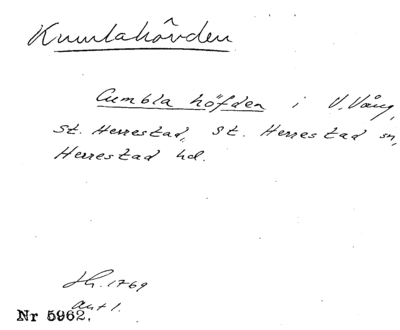 Kumlahövden
Cumbla höfden i V. Vång,
St. Herrestad, St. Herrestad sn,
Herrestad hd.
1769
akt 1.
Nr 5962.